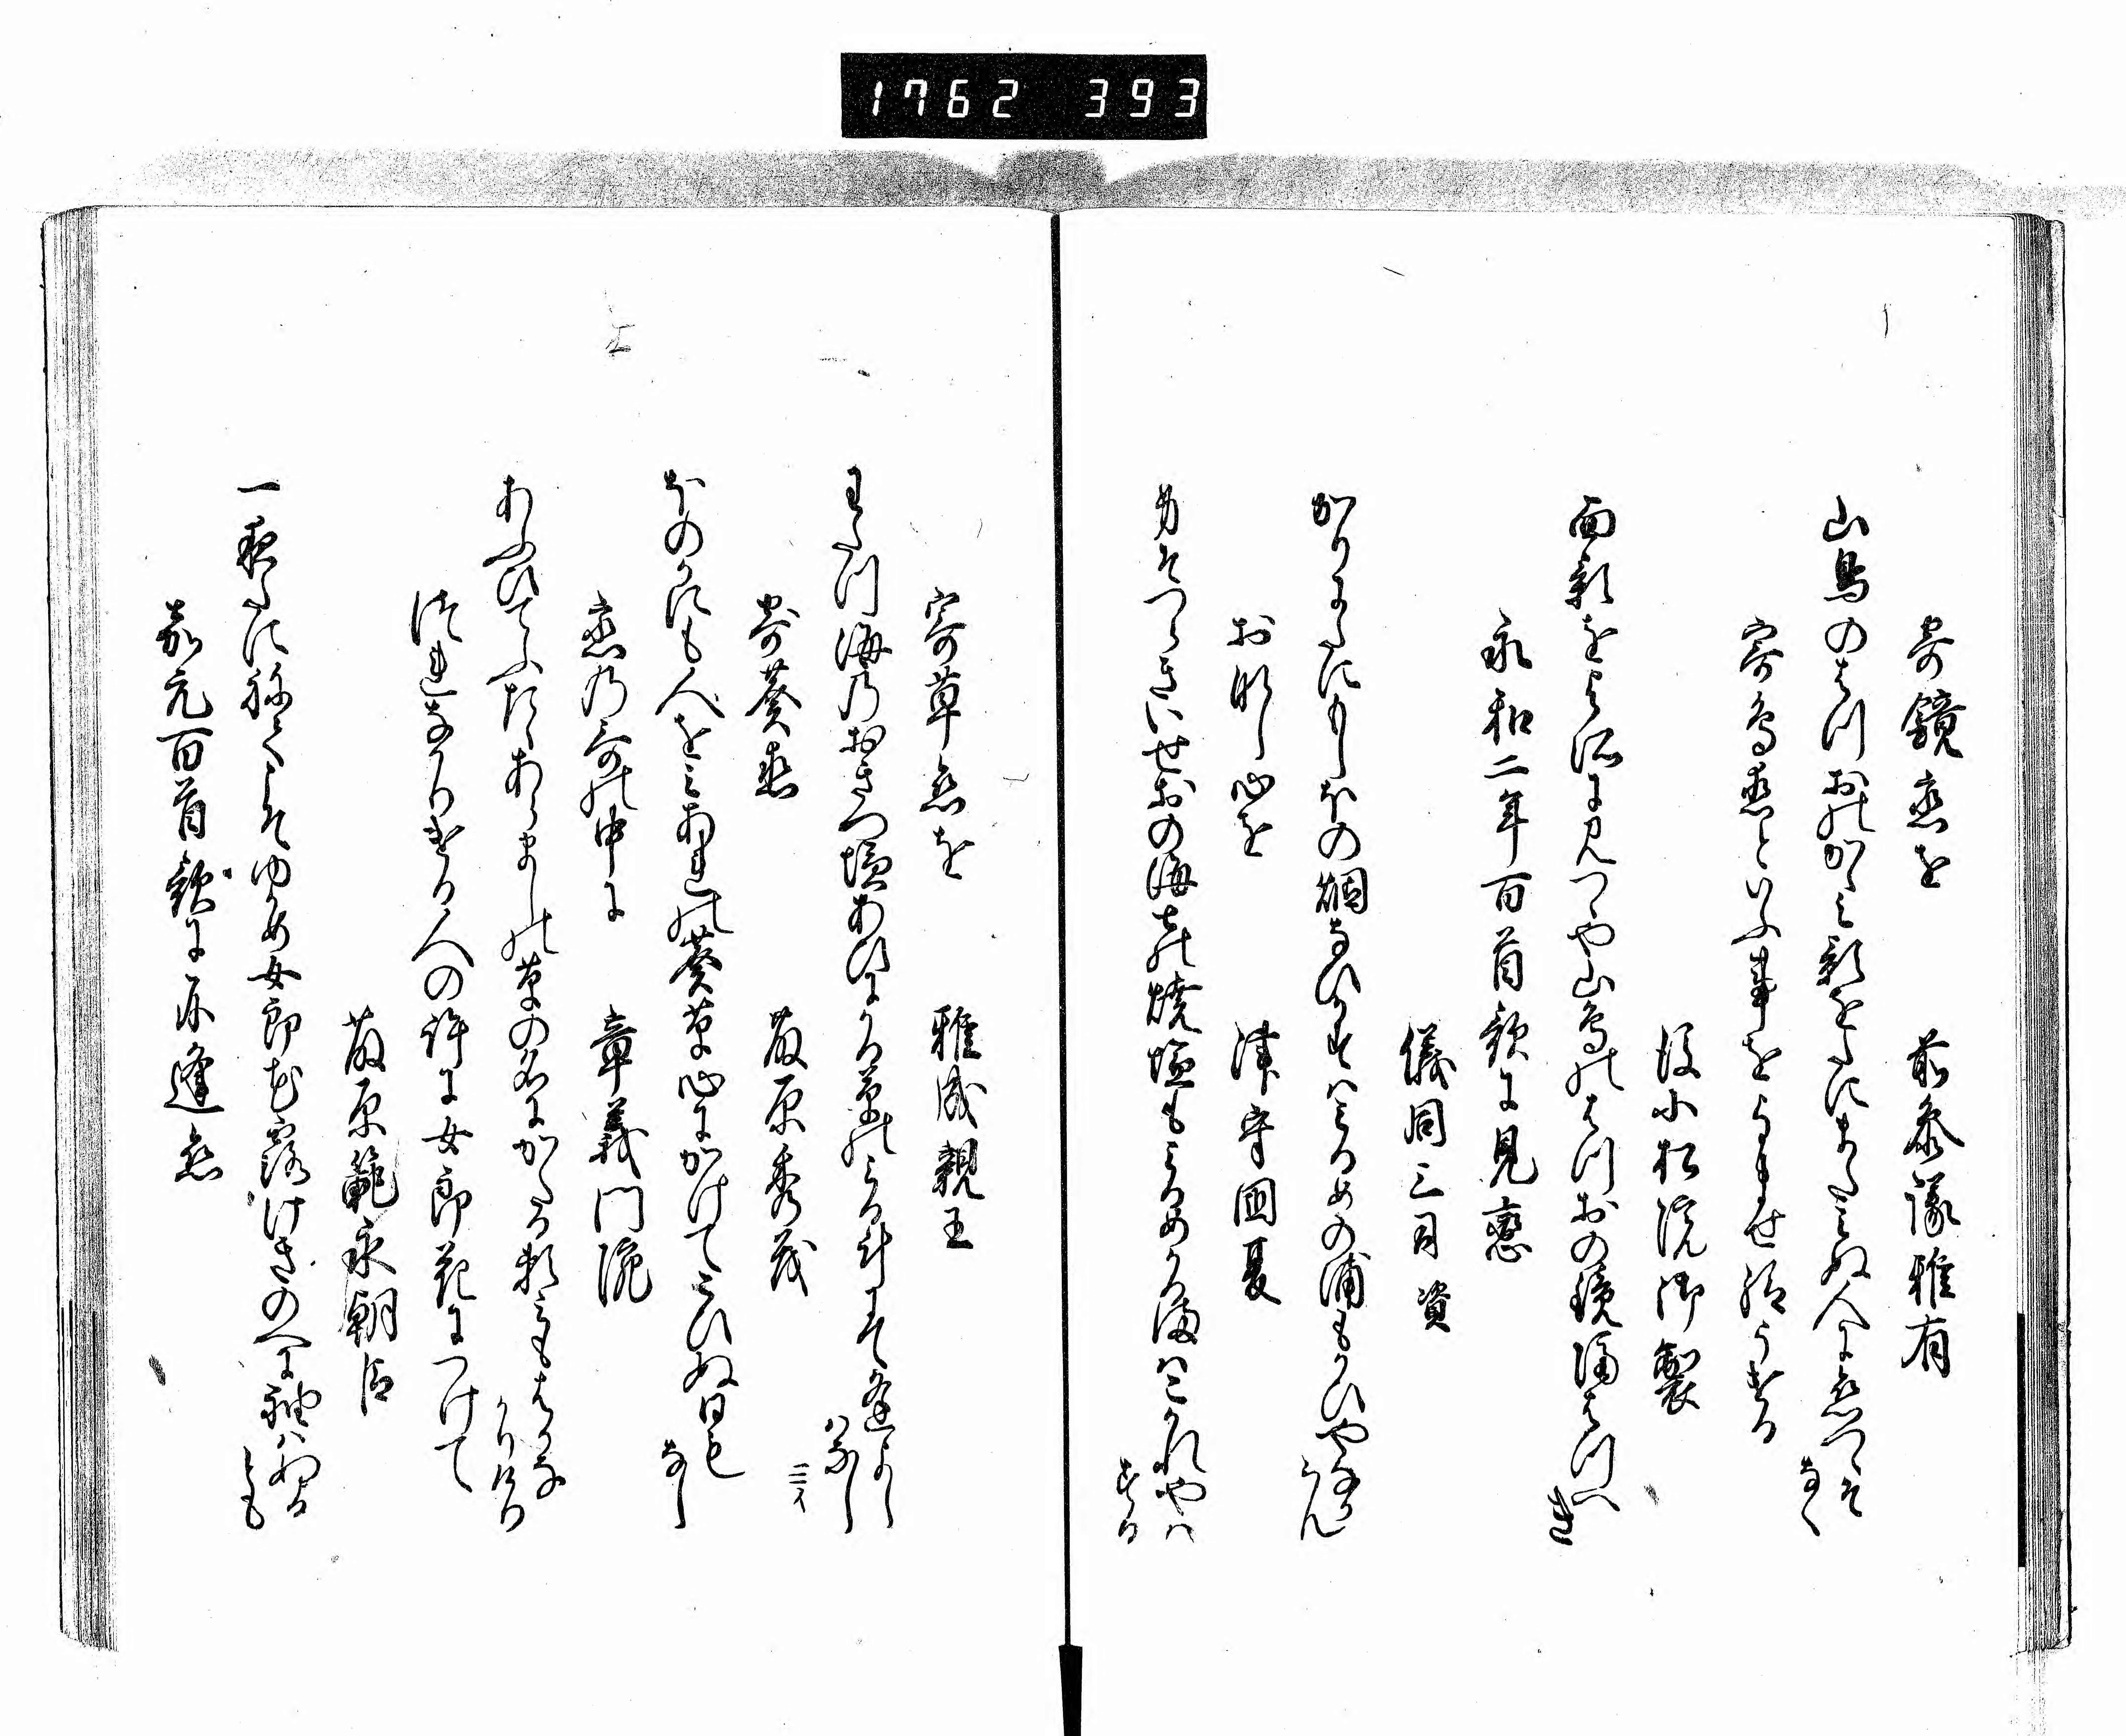 1762 393
寄鏡恋を 前参議雅有
山鳥のはつおのかゝみ影をたにまたみぬ人に恋つゝそ
なく
寄鳥恋といふ事をよませ給うける
後小松院御製
面影をよそに見つや山鳥のはつおの鏡隔はつへ
き
永和二年百首歌に見恋
儀同三司資
かりにたにもしほの烟なひかすはみるめの浦もかひやなか
らん
おなし心を 津守国夏
身そつらきいせおの海士の焼塩もみるめかる海はこかれやは
する
寄草恋を 雅成親王
わたつ海のおきつ塩あひにかる草のみる計すて逢よし
はなし
寄葵恋 藤原秀茂
ほのかにも人をみあれの葵草心にかけてこひぬ日も
なし
恋の哥の中に 章義門院
あふひてふたゝあらましの草の名にかゝる頼みもはかな
かりける
つれなかりける人の許に女郎花につけて
藤原範永朝臣
一夜たにねてこそゆかめ女郎花露けきのへに袖はぬる
とも
嘉元百首歌に不逢恋